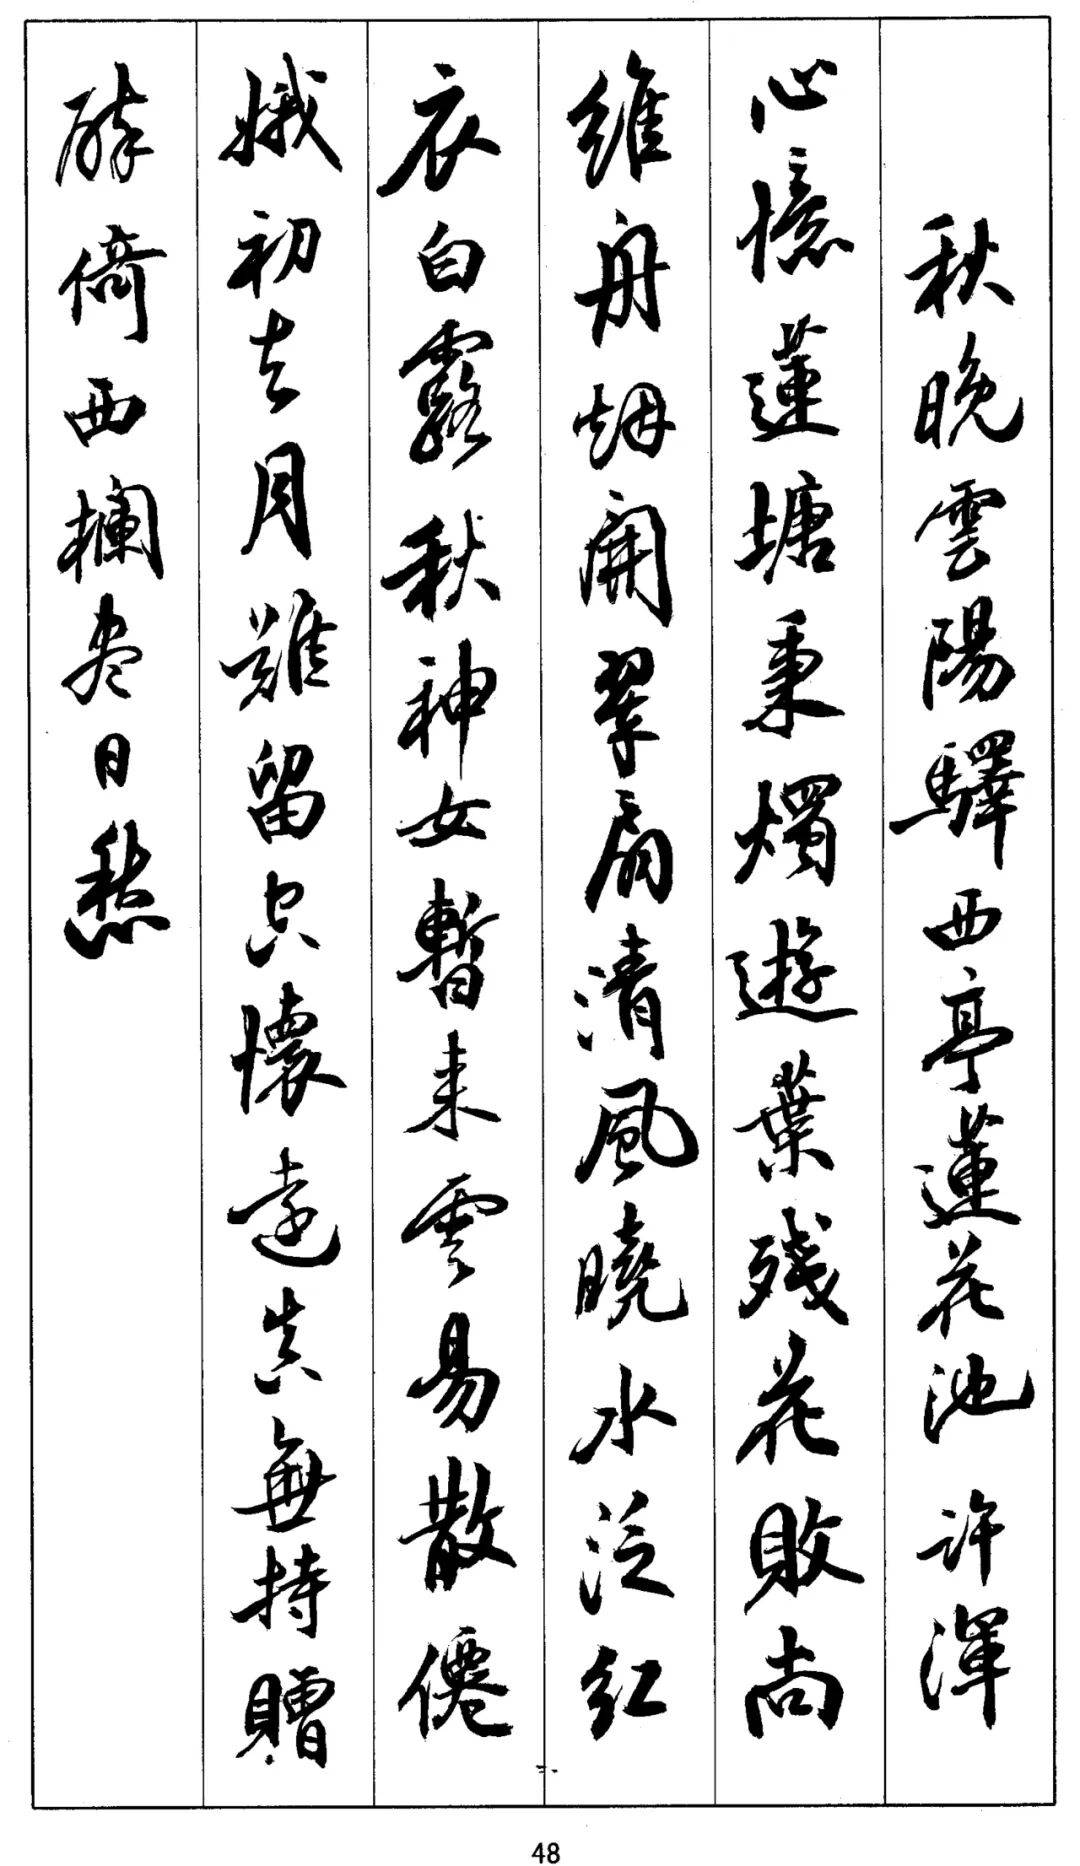 秋晚雲陽驛西亭蓮花池 许渾
心憶蓮塘秉燭遊葉残花敗尚
維舟烟開翠扇清風曉水泛紅
衣白露秋神女暫来雲易散僊
娥初去月難留空懷遠道無持贈
醉倚西欄尽日愁
48